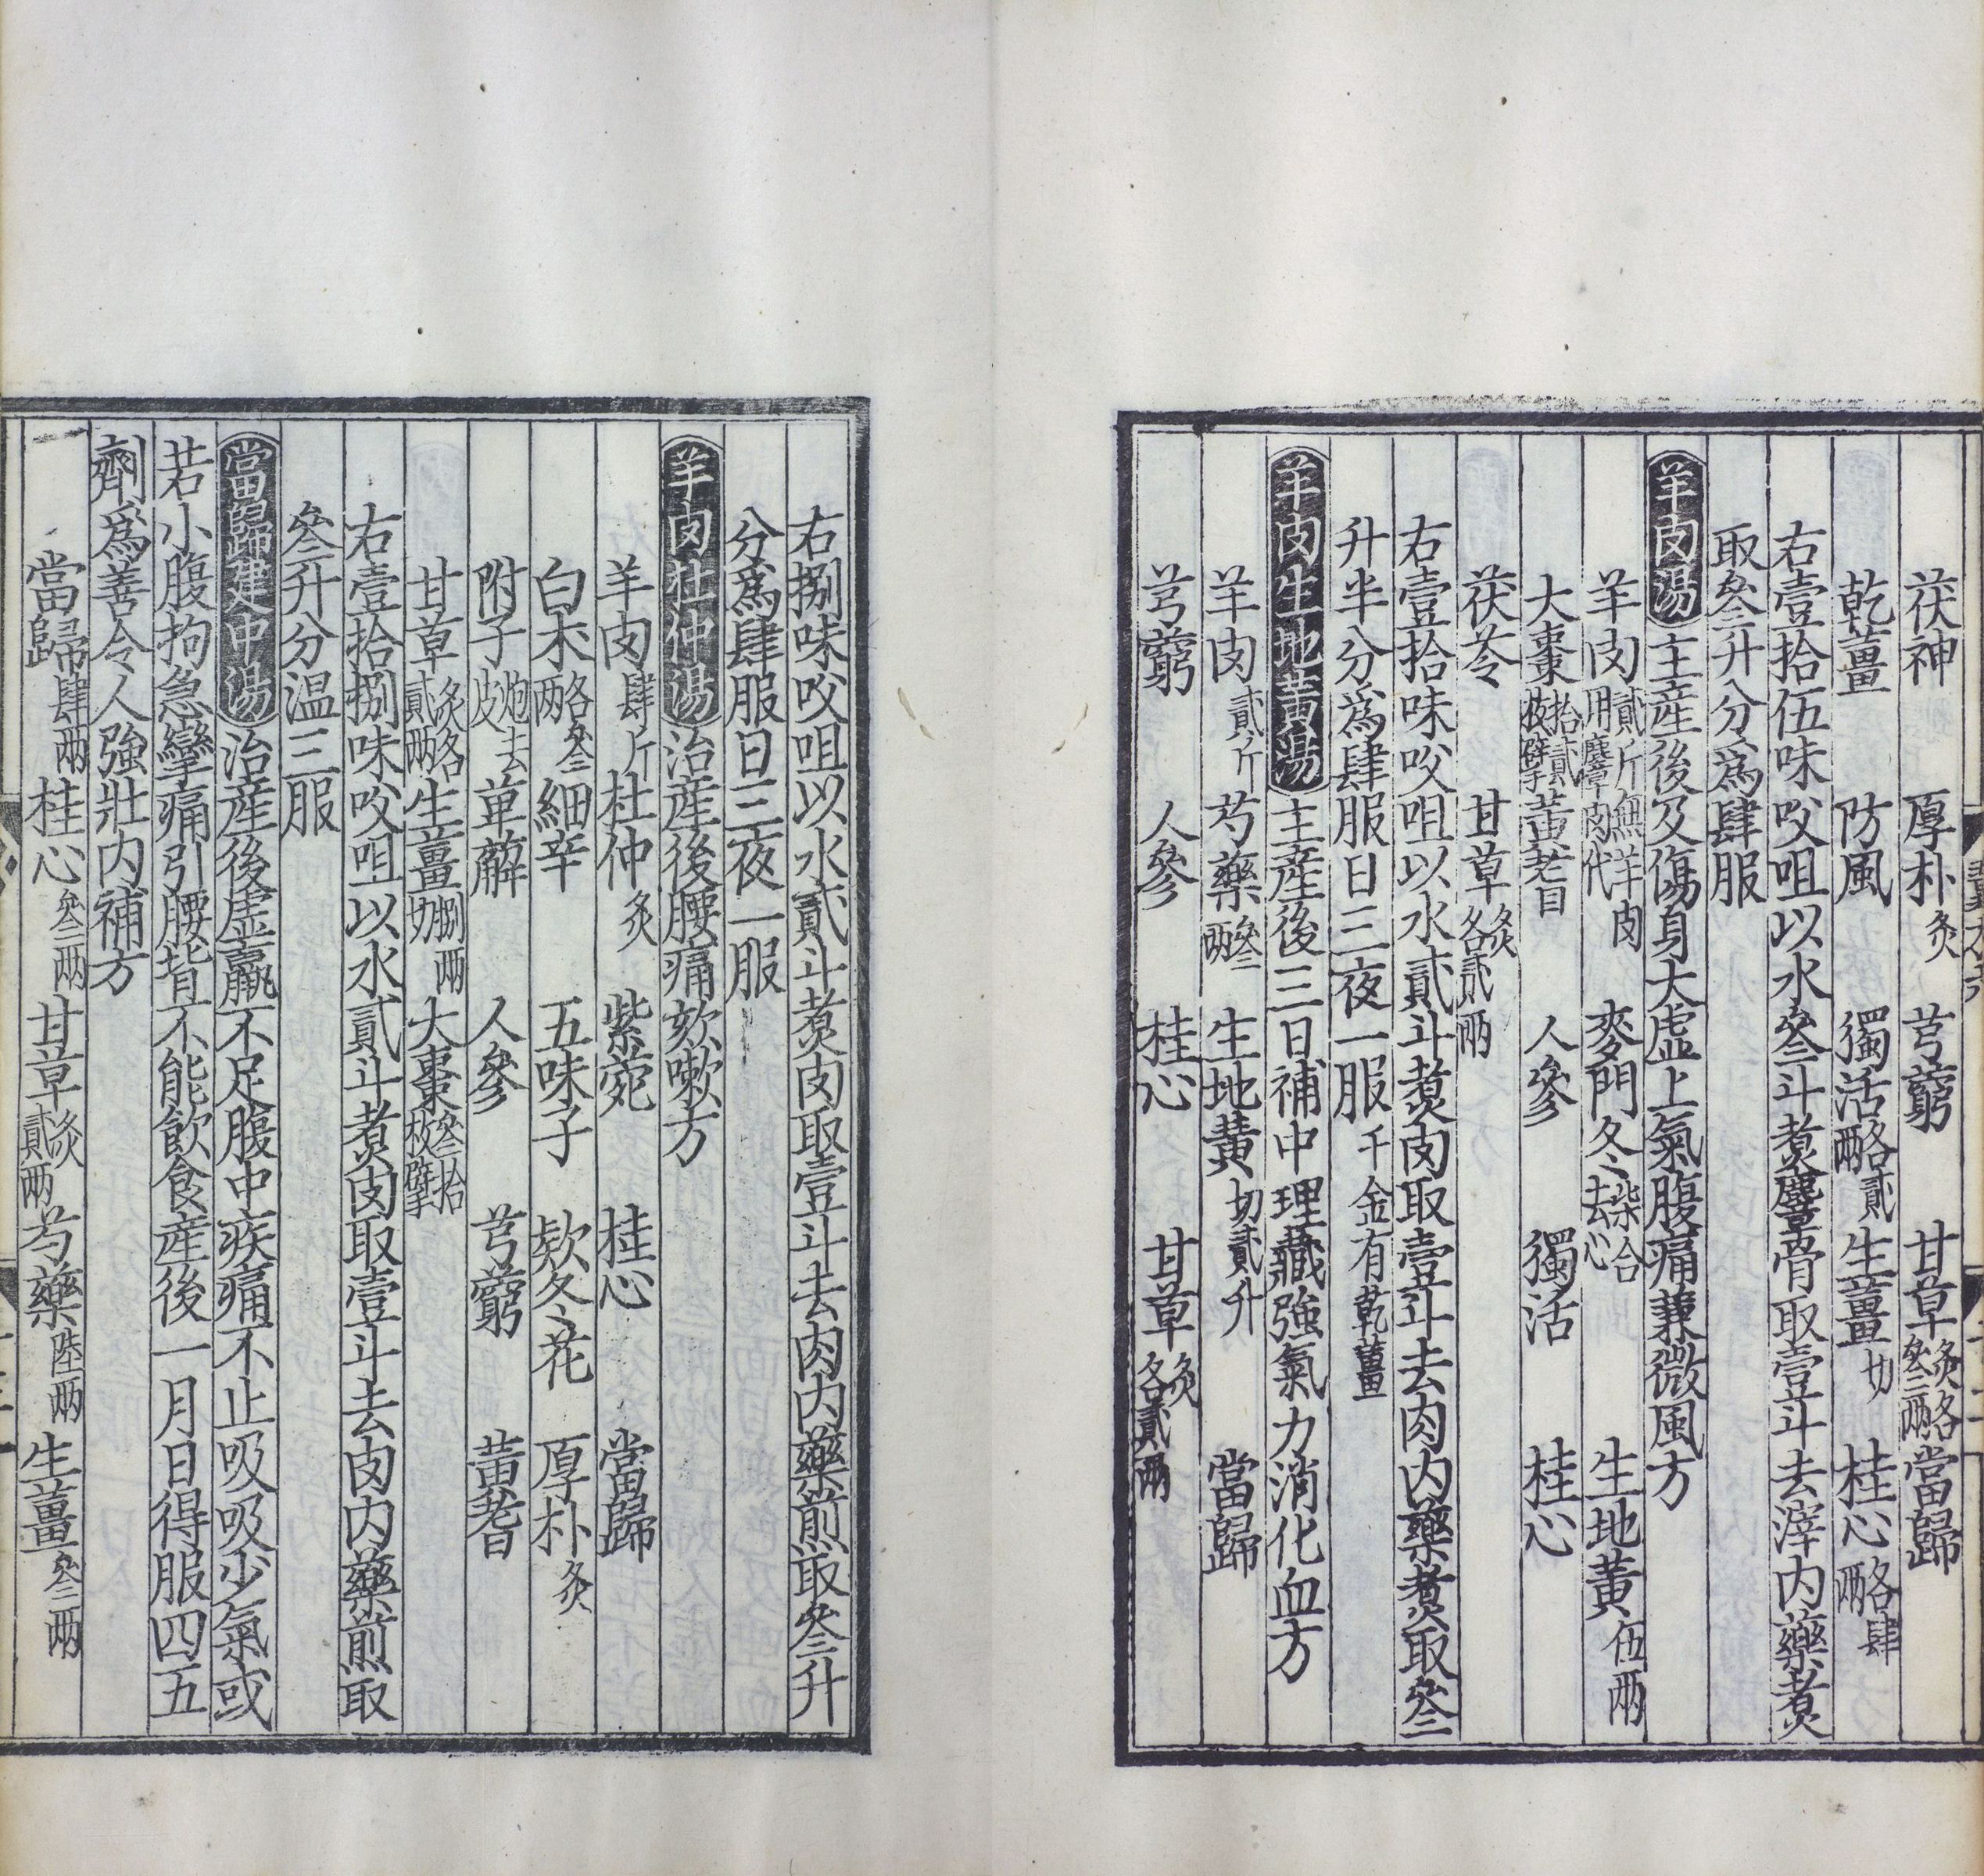 茯神　厚朴炙　芎藭　甘草炙各叁兩　當歸
乾薑　防風　獨活各貳兩　生薑切　桂心各肆兩
右壹拾伍味㕮咀以水叁斗煮麞骨取壹斗去滓內藥煮
取叁升分爲肆服
羊肉湯主產後及傷身大虛上氣腹痛兼微風方
羊肉貳斤無羊肉用麞肉代　麥門冬柒合去心　生地黃伍兩
大棗拾貳枚擘　黃耆　人參　獨活　桂心
茯苓　甘草炙各貳兩
右壹拾味㕮咀以水貳斗煮肉取壹斗去肉內藥煮取叁
升半分爲肆服日三夜一服千金有乾薑
羊肉生地黃湯主產後三日補中理藏強氣力消化血方
羊肉貳斤　芍藥叁兩　生地黃切貳升　當歸
芎藭　人參　桂心　甘草炙各貳兩
右捌味㕮咀以水貳斗煮肉取壹斗去肉內藥煎取叁升
分爲肆服日三夜一服
羊肉杜仲湯治產後腰痛欬嗽方
羊肉肆斤　杜仲炙　紫菀　桂心　當歸
白朮各叁兩　細辛　五味子　欵冬花　厚朴炙
附子炮去皮　萆薢　人參　芎藭　黃耆
甘草炙各貳兩　生薑切捌兩　大棗叁拾枚擘
右壹拾捌味㕮咀以水貳斗煮肉取壹斗去肉內藥煎取
叁升分溫三服
當歸建中湯治產後虛羸不足腹中疾痛不止吸吸少氣或
若小腹拘急攣痛引腰背不能飲食產後一月日得服四五
劑爲善令人強壯內補方
當歸肆兩　桂心叁兩　甘草炙貳兩　芍藥陸兩　生薑叁兩